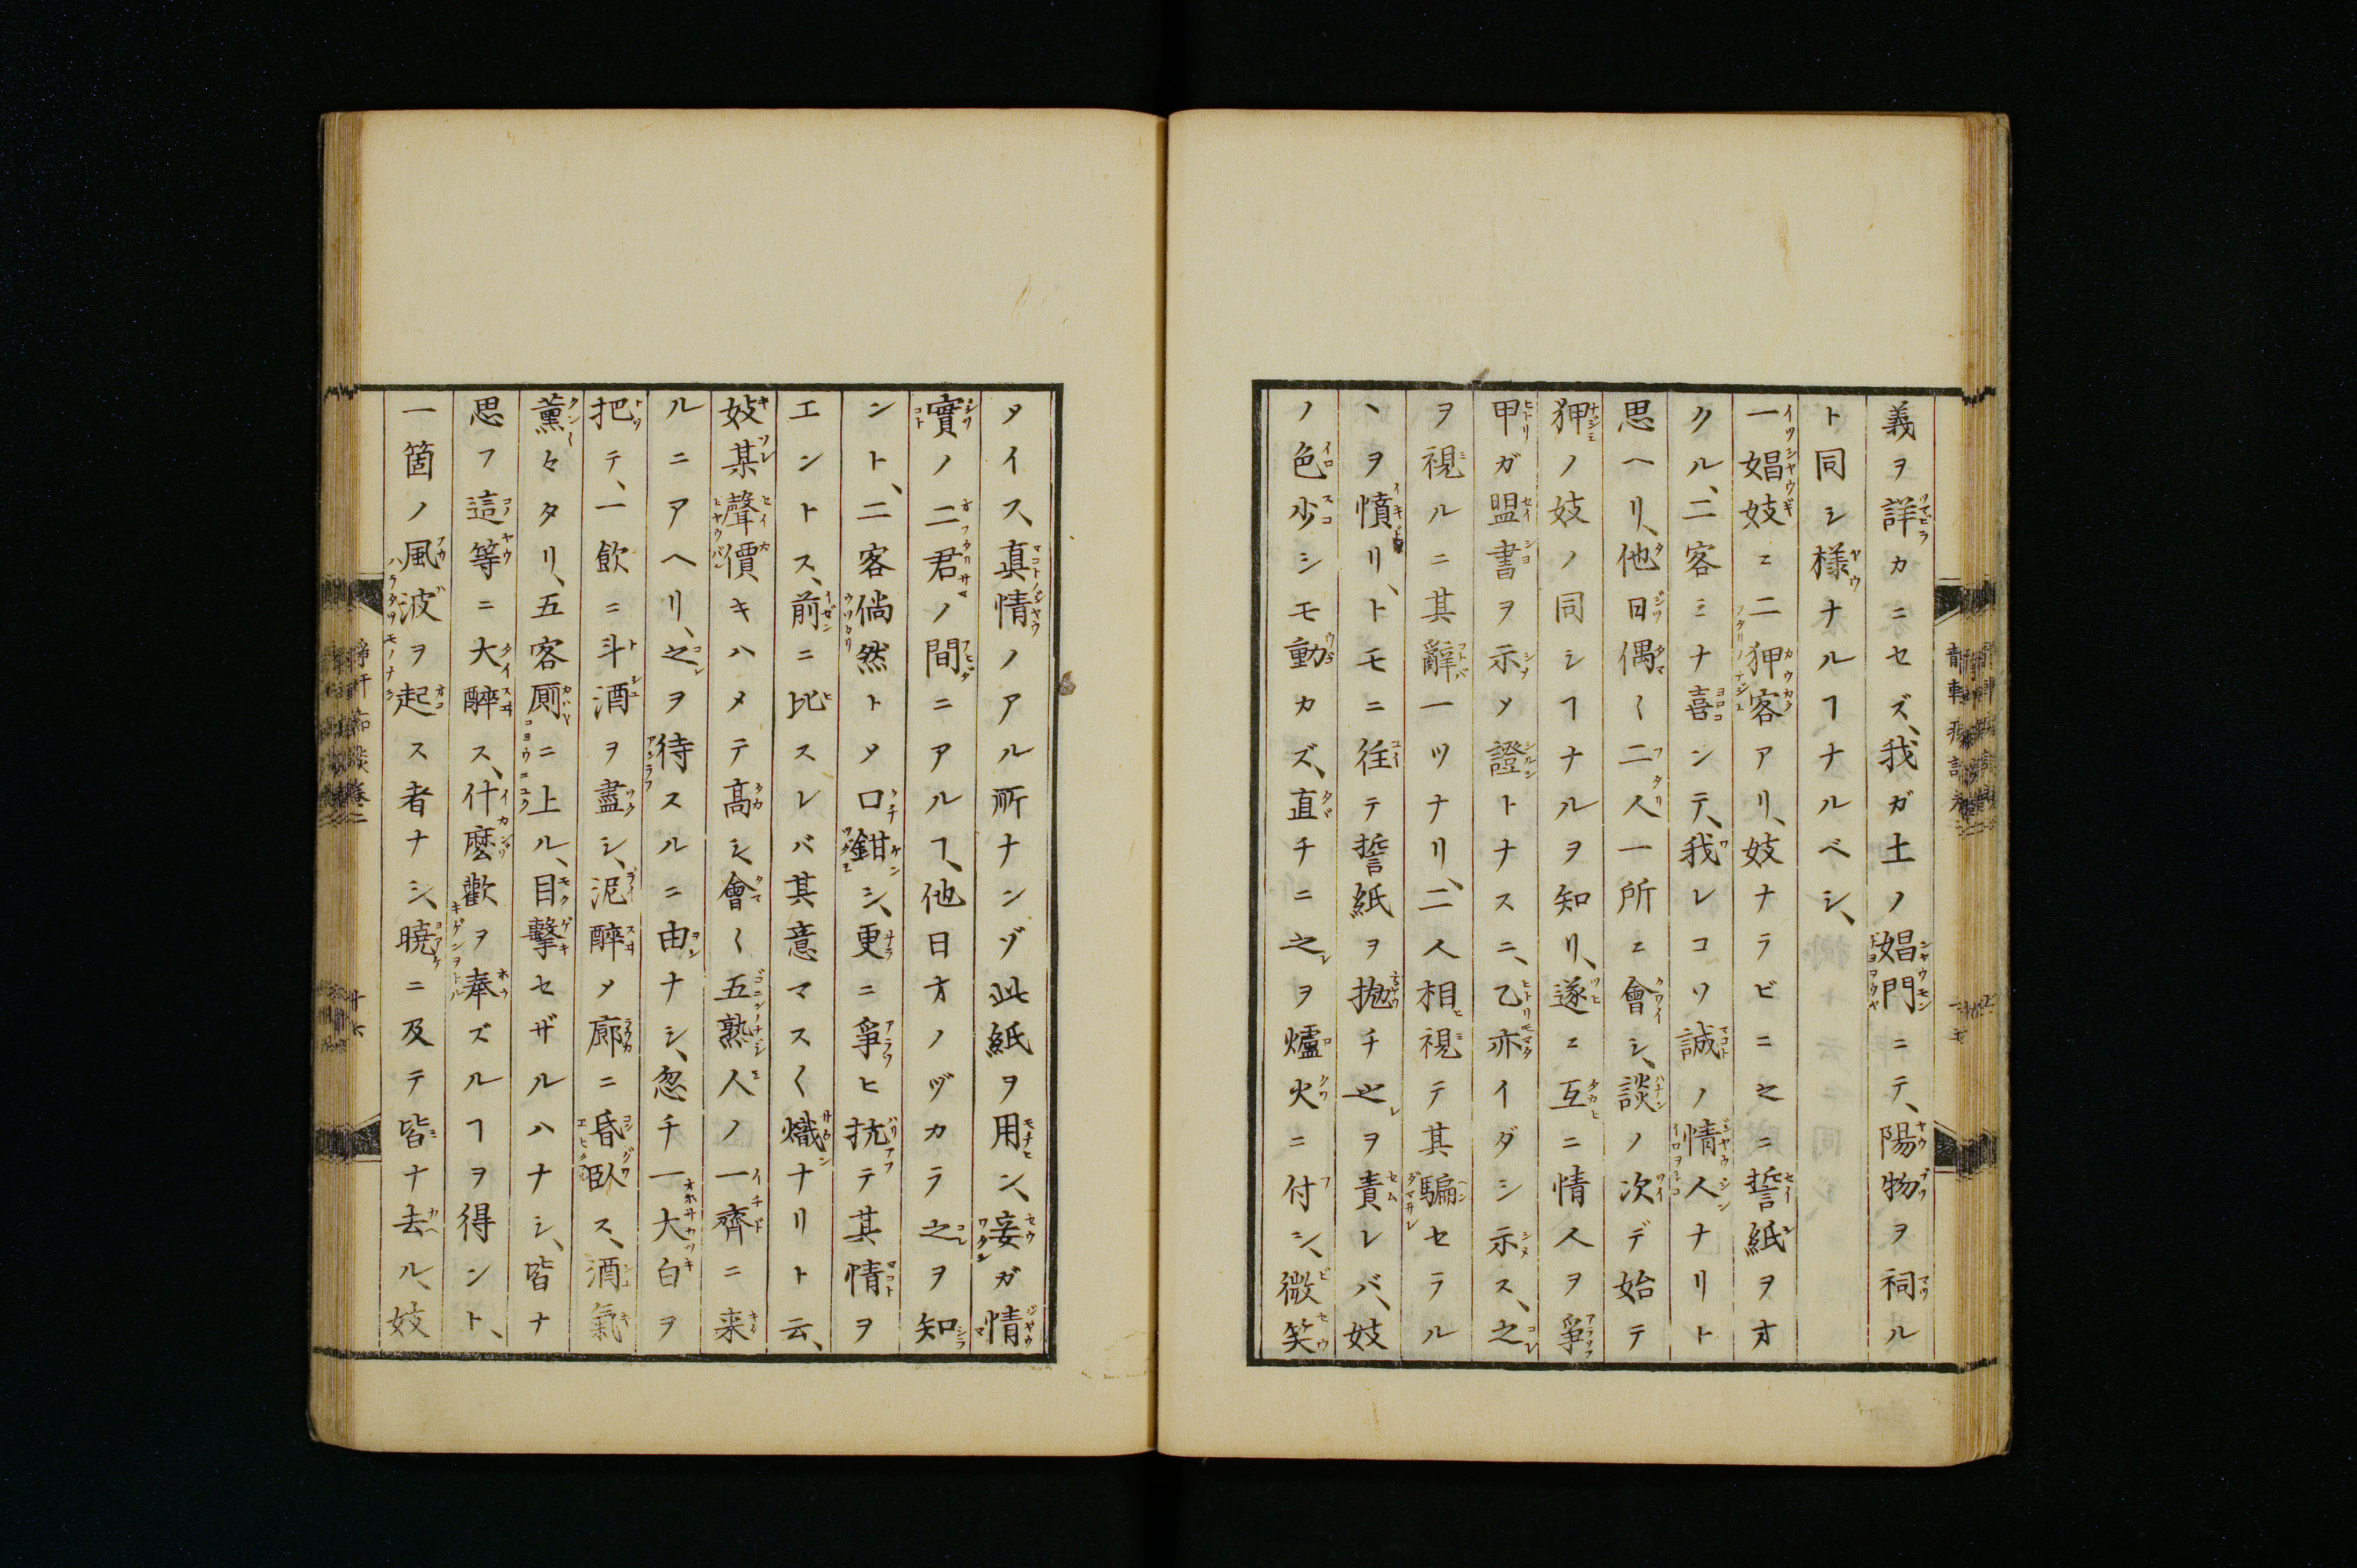 義ヲ詳カニセズ、我ガ土ノ娼門ニテ、陽物ヲ祠ル
ト同シ様ナルヿナルベシ、
一娼妓ニ二狎客アリ、妓ナラビニ之ニ誓紙ヲオ
クル、二客ミナ喜ンデ、我レコソ誠ノ情人ナリト
思ヘリ、他日偶〱二人一所ニ會シ、談ノ次デ始テ
狎ノ妓ノ同シヿナルヲ知リ、遂ニ互ニ情人ヲ爭
甲ガ盟書ヲ示メ證トナスニ、乙亦イダシ示ス、之
ヲ視ルニ其辭一ツナリ、二人相視テ其騙セラル
ヽヲ憤リ、トモニ往テ誓紙ヲ抛チ之ヲ責レバ、妓
ノ色少シモ動カズ、直チニ之ヲ爐火ニ付シ、微笑
タイス、真情ノアル所ナンゾ此紙ヲ用ン、妾ガ情
實ノ二君ノ間ニアルヿ、他日オノヅカラ之ヲ知
ント、二客倘然トメ口鉗シ、更ニ爭ヒ抗テ其情ヲ
エントス、前ニ比スレバ其意マス〱熾ナリト云、
妓某聲價キハメテ高シ、會〱五熟人ノ一齊ニ来
ルニアヘリ、之ヲ待スルニ由ナシ、忽チ一大白ヲ
把テ、一飲ニ斗酒ヲ盡シ、泥醉メ廊ニ昏臥ス、酒氣
薫々タリ、五客厠ニ上ル、目擊セザルハナシ、皆ナ
思フ這等ニ大醉ス、什麽歡ヲ奉ズルヿヲ得ント、
一箇ノ風波ヲ起ス者ナシ、曉ニ及テ皆ナ去ル、妓